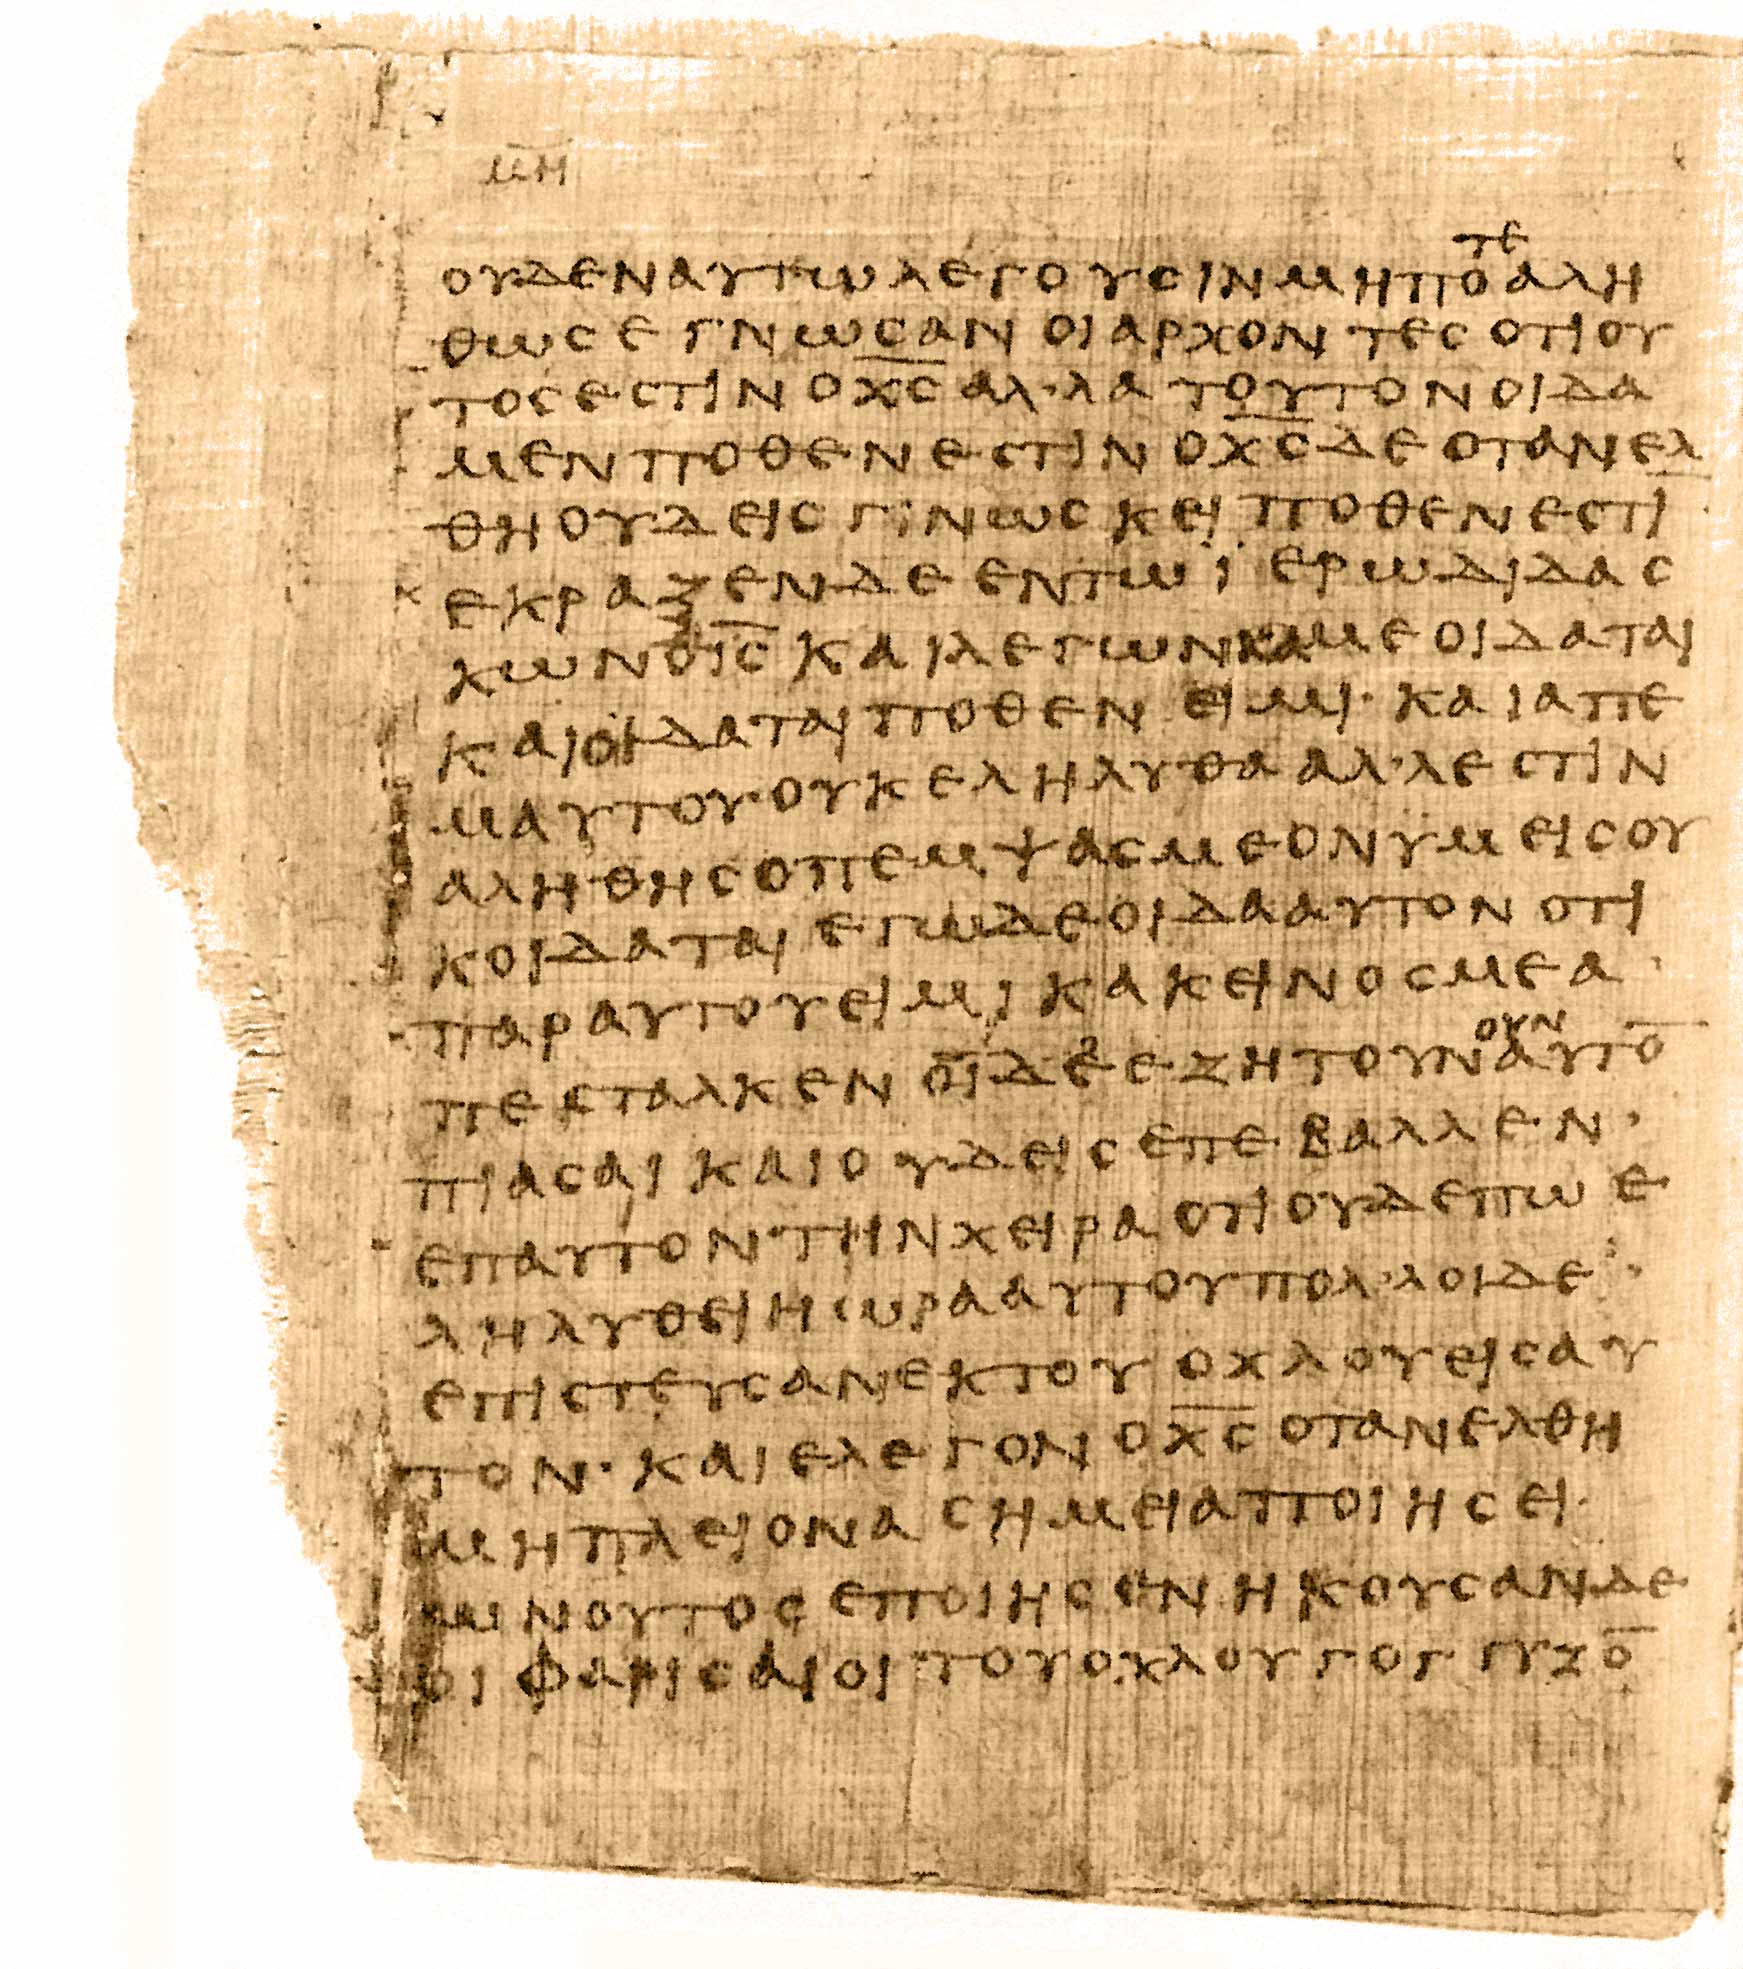 μη
τε
ουδεναυτωλεγουσινμηποαλη
θωσεγνωσαν οιαρχοντες οτιου
τοσεστιν οχ̅ς̅ αλ·λα τουτον οιδα
μεν ποθεν εστιν οχ̅ς̅δε οτανελ
θηουδεις γινωσκει ποθεν εστι
εκραξενδε εντωϊ ερωδιδας
κωνοι̅ς̅ και λεγων καμε οιδαται
καιοιδαται ποθεν ειμι· και απε
μαυτου·ουκεληλυθα αλ·λεστιν
αληθης ο πεμψας με ον υμεις ου
κοιδαται εγωδεοιδααυτον οτι
παραυτου ειμι κακεινος με α
ουν
πεσταλκεν οιδε εζητουναυτο̅
πιασαι και ουδεις επεβαλλεν·
επαυτον·την χειρα οτι ουδεπω ε
ληλυθει η ωρα αυτου πολ·λοιδε·
επιστευσαν εκ του οχλου εισαυ
τον· και ελεγον οχ̅ς̅ οτανελθη
μη πλειονα σημεια ποιησει·
ων ουτος εποιησεν ηκουσανδε
οι φαρισαιοι του οχλου γογγυζο̅